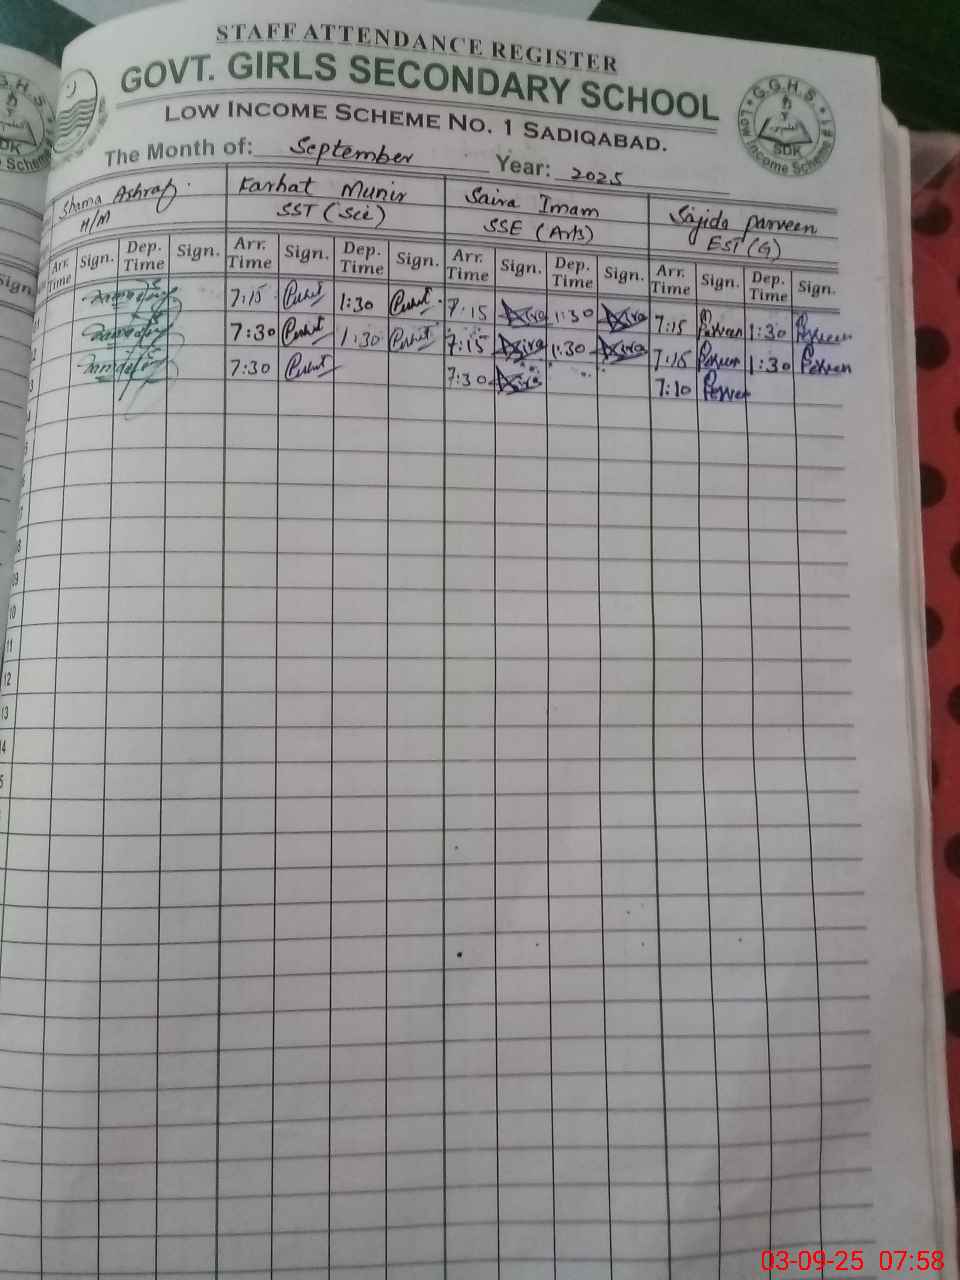 STAFF ATTENDANCE REGISTER
GOVT. GIRLS SECONDARY SCHOOL
LOW INCOME SCHEME NO. 1 SADIQABAD.
G.G.H.S.
LOW Income Scheme #1
SDK
The Month of: September Year: 2025
Shama Ashraf Farhat Munir Saira Imam Sajida Parveen
H/M SST (Sci) SSE (Arts) EST (G)
Arr. Time Sign. Dep. Time Sign. Arr. Time Sign. Dep. Time Sign. Arr. Time Sign. Dep. Time Sign. Arr. Time Sign. Dep. Time Sign.
7:15 1:30 7:15 1:30 7:15 Parveen 1:30 Parveen
7:30 1:30 7:15 1:30 7:15 Parveen 1:30 Parveen
7:30 7:30 7:10 Parveen
8
9
10
11
12
13
03-09-25 07:58